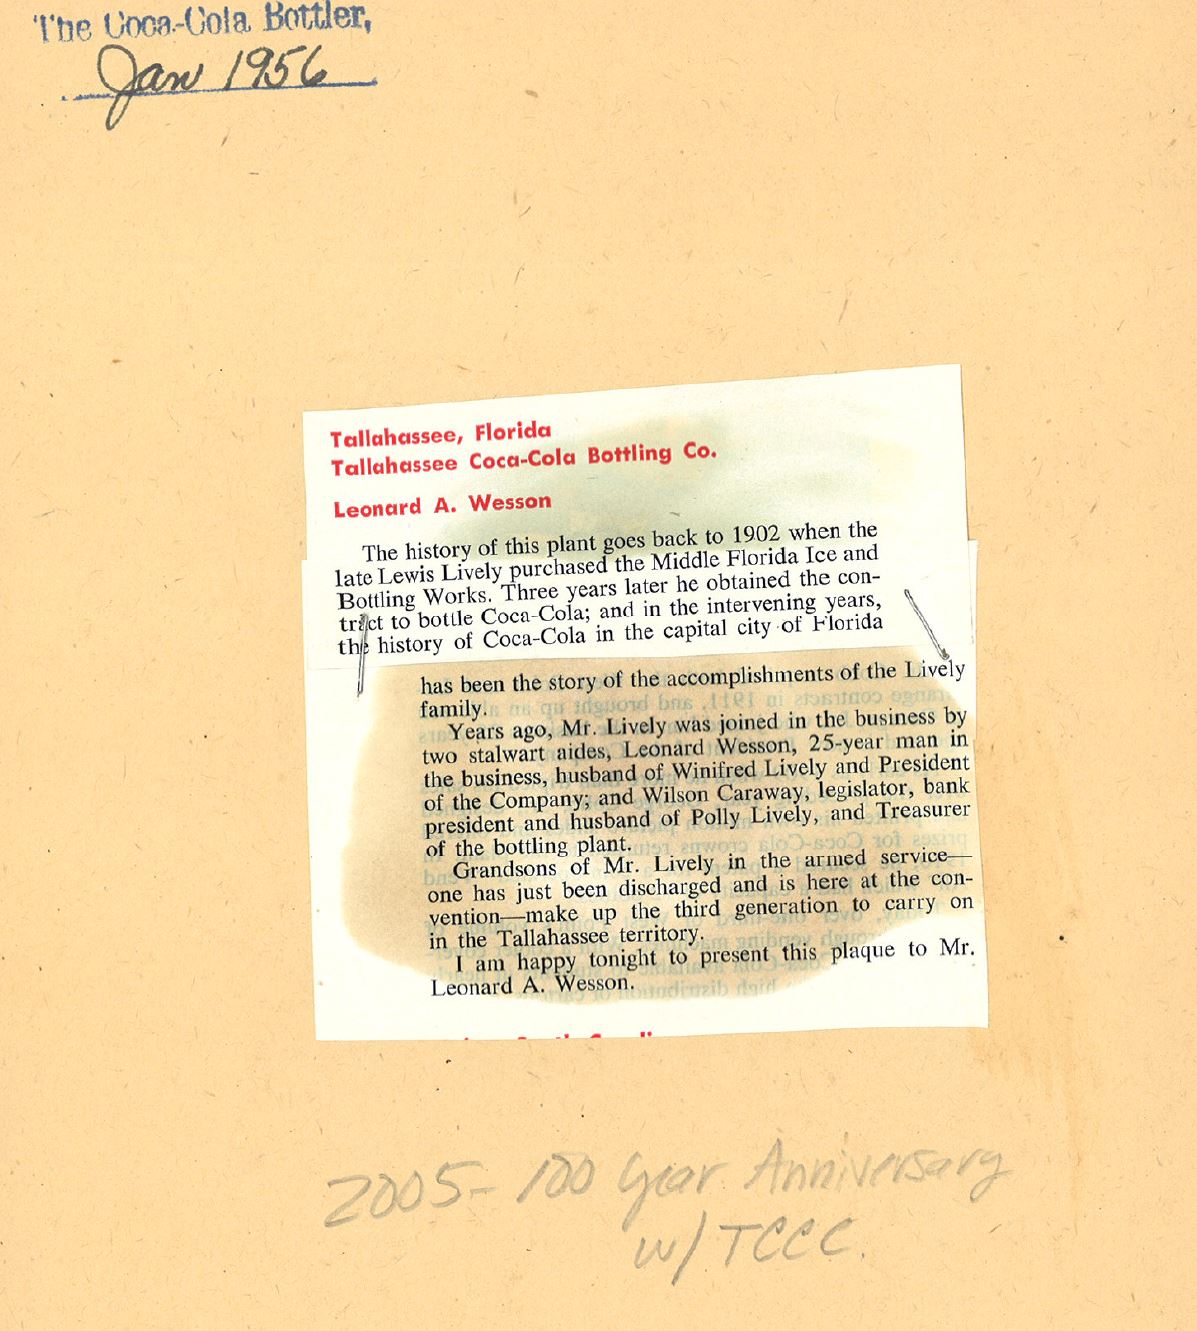 The Coca-Cola Bottler,
Jan 1956
Tallahassee, Florida
Tallahassee Coca-Cola Bottling Co.
Leonard A. Wesson
The history of this plant goes back to 1902 when the
late Lewis Lively purchased the Middle Florida Ice and
Bottling Works. Three years later he obtained the con-
tract to bottle Coca-Cola; and in the intervening years,
the history of Coca-Cola in the capital city of Florida
has been the story of the accomplishments of the Lively
family.
Years ago, Mr. Lively was joined in the business by
two stalwart aides, Leonard Wesson, 25-year man in
the business, husband of Winifred Lively and President
of the Company; and Wilson Caraway, legislator, bank
president and husband of Polly Lively, and Treasurer
of the bottling plant.
Grandsons of Mr. Lively in the armed service—
one has just been discharged and is here at the con-
vention—make up the third generation to carry on
in the Tallahassee territory.
I am happy tonight to present this plaque to Mr.
Leonard A. Wesson.
2005- 100 Year Anniversary
w/ TCCC.